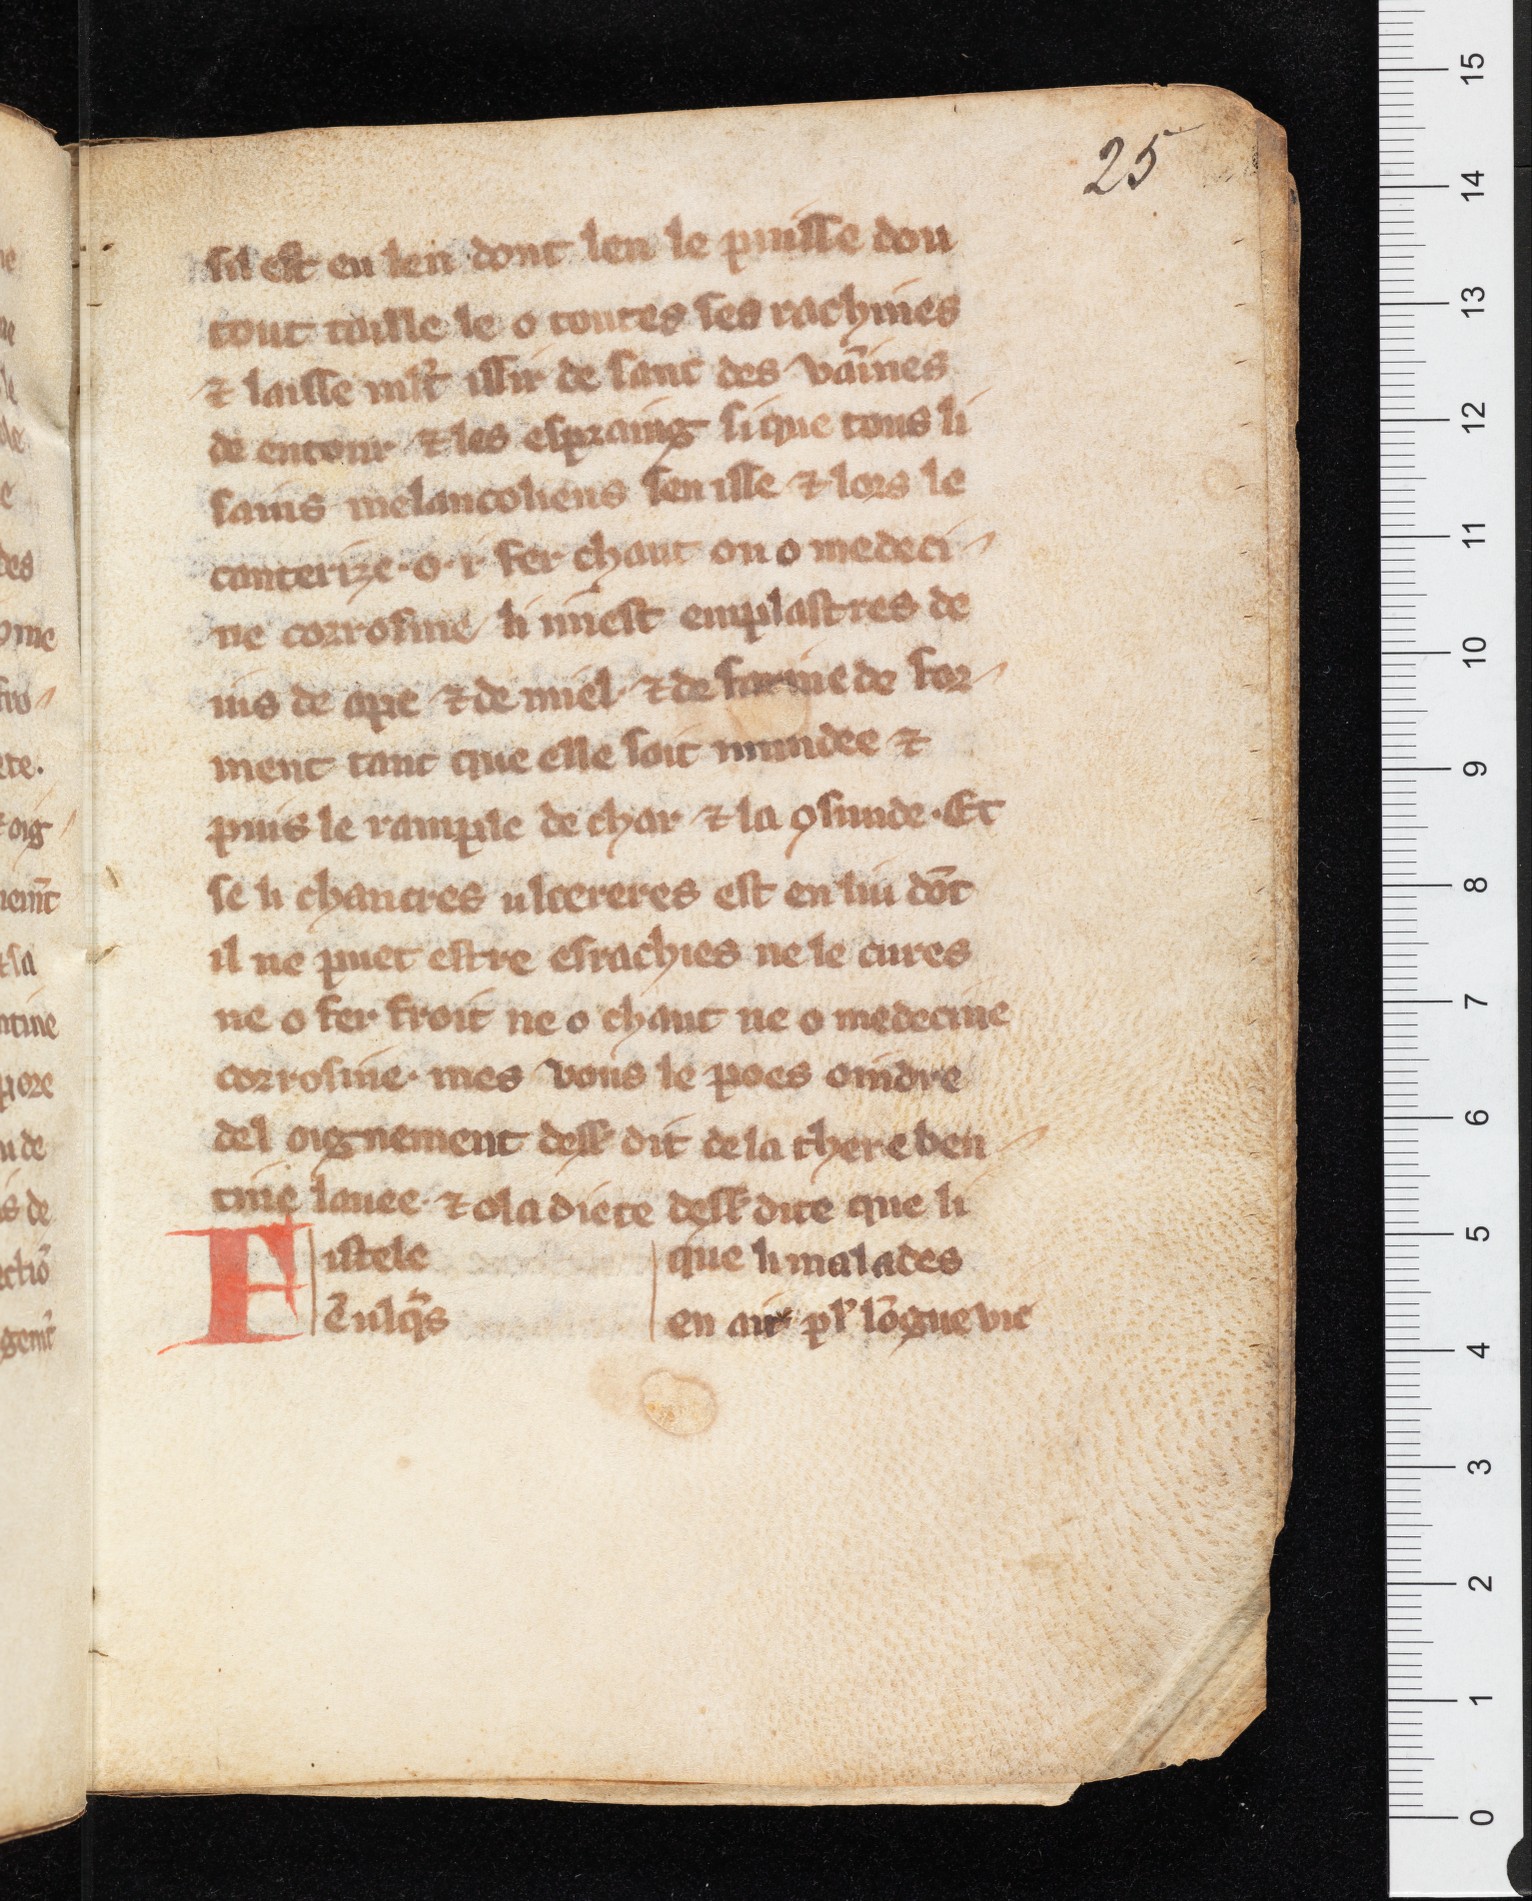 25
sil est en len dont len le puisse dou
tout taille le o toutes ses rachines
⁊ laisse mlt issir de sanc des vaines
de entour ⁊ les espraing si que tous li
sans melancoliens sen isse ⁊ lors le
cauterize·o·i· fer chaut ou o medeci
ne corrosiue li miest emplastres de
ius de ape ⁊ de miel· ⁊ de farine de for
ment tant que elle soit mundee ⁊
puis le rample de char ⁊ la ꝯsaude· Et
se li chancres ulcereres est en liu dōt
il ne puet estre esrachies ne le cures
ne o fer froit ne o chaut ne o medecine
corrosiue· mes vous le poes oindre
del oignement dess' dit de lathereben
tine lauee· ⁊ o la diete dess' dite que li
Fistele
ē ulq̄s
que li malades
en air pl' lōgue vie